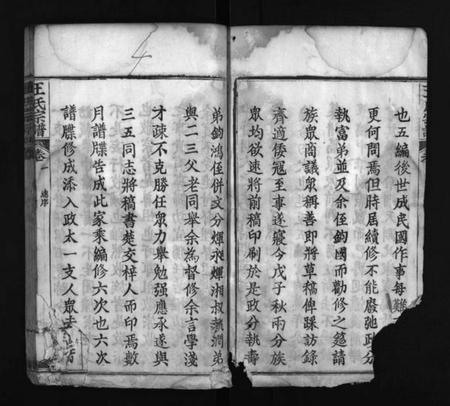 也五編後世成民國作事每難
更何問焉但時屆續修不能廢弛政分
執富弟並及余侄鈞國而勸修之筵請
族眾商議眾稱善即將草稿俾踩訪錄
齊適倭冦至事遂寢今戊子秋兩分族
眾均欲速將前稿印刷於是政分執壽
弟鈞鴻侄併文分煇永煇湘叔執潤弟
與二三父老同舉余為督修余言學淺
才疎不克勝任眾力舉勉强應承遂與
三五同志將稿書楚交梓人而印焉數
月譜牒告成此家乘編修六次也六次
譜牒修成添入政太一支人眾
王氏宗譜
卷
序
4